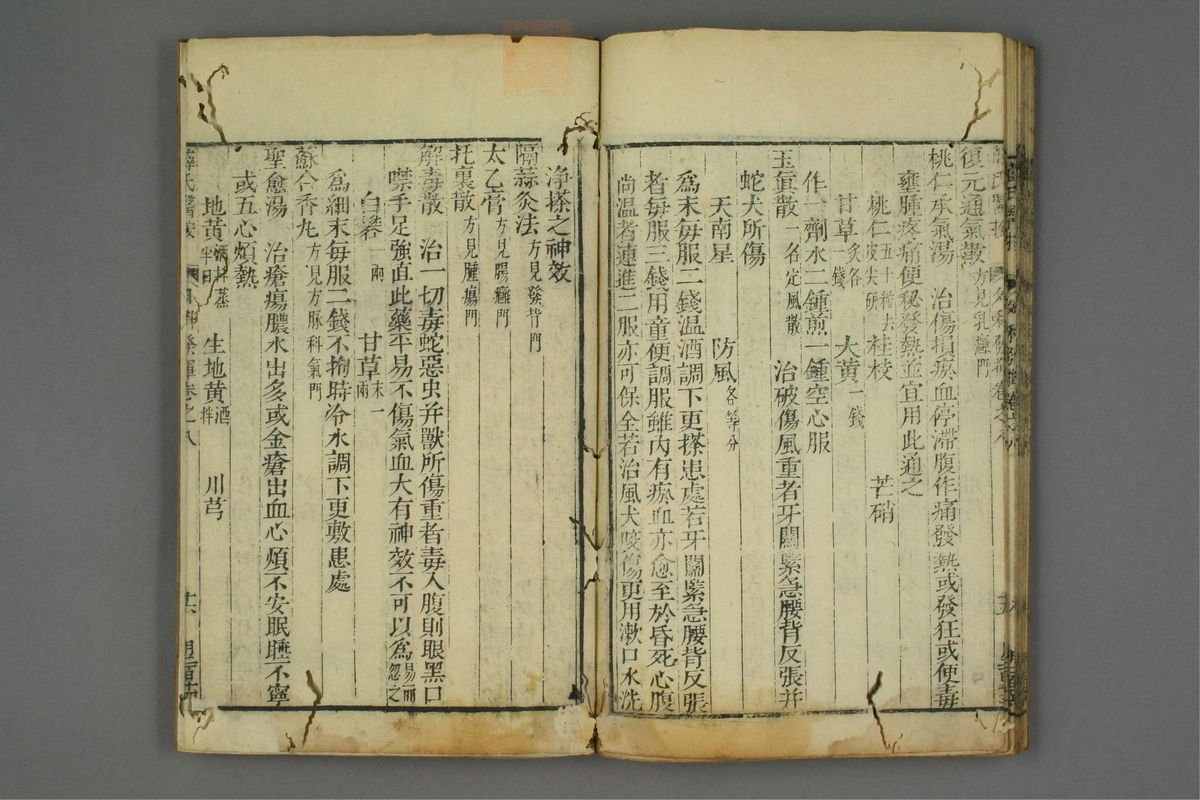 復元通氣散方見乳癰門
桃仁承氣湯 治傷損瘀血停滯腹作痛發熱或發狂或便毒
壅腫疼痛便秘發熱並宜用此通之
桃仁五十粒去皮尖研 桂枝 芒硝
甘草炙各一錢 大黃二錢
作一劑水二鍾煎一鍾空心服
玉眞散一名定風散 治破傷風重者牙關緊急腰背反張并
蛇犬所傷
天南星 防風各等分
爲末每服二錢温酒調下更搽患處若牙關緊急腰背反張
者每服三錢用童便調服雖内有瘀血亦愈至於昏死心腹
尚温者連進二服亦可保全若治風犬咬傷更用漱口水洗
淨搽之神效
隔蒜灸法方見發背門
太乙膏方見腸癰門
托裏散方見腫瘍門
解毒散 治一切毒蛇惡虫并獸所傷重者毒入腹則眼黑口
噤手足強直此藥平易不傷氣血大有神效不可以爲易而忽之
白礬一兩 甘草末一兩
爲細末每服二錢不拘時冷水調下更敷患處
蘇合香丸方見方脉科氣門
聖愈湯 治瘡瘍膿水出多或金瘡出血心煩不安眠睡不寧
或五心煩熱
地黃酒拌蒸半日 生地黃酒拌 川芎
薛氏醫按 卷之八 十六